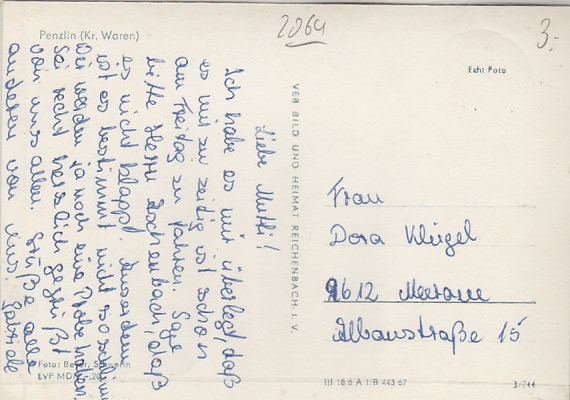 Penzlin (Kr. Waren)
2064
3.-
Echt Foto
Liebe Mutti!
Ich habe es mir überlegt, daß
es mir zu zeitig ist schon
am Freitag zu fahren. Sage
bitte Herrn Eschenbach, daß
es nicht klappt. Ausserdem
ist es bestimmt nicht so schlimm
Wir werden ja noch eine Probe haben.
Sei recht herzlich gegrüßt
von uns allen. Grüße alle
anderen von uns. Gabriele
VEB BILD UND HEIMAT REICHENBACH I. V.
Frau
Dora Klügel
9612 Meerane
Albanstraße 15
Foto: Beyer, Schwerin
LVP MDN
III 18 6 A 1/B 443 67